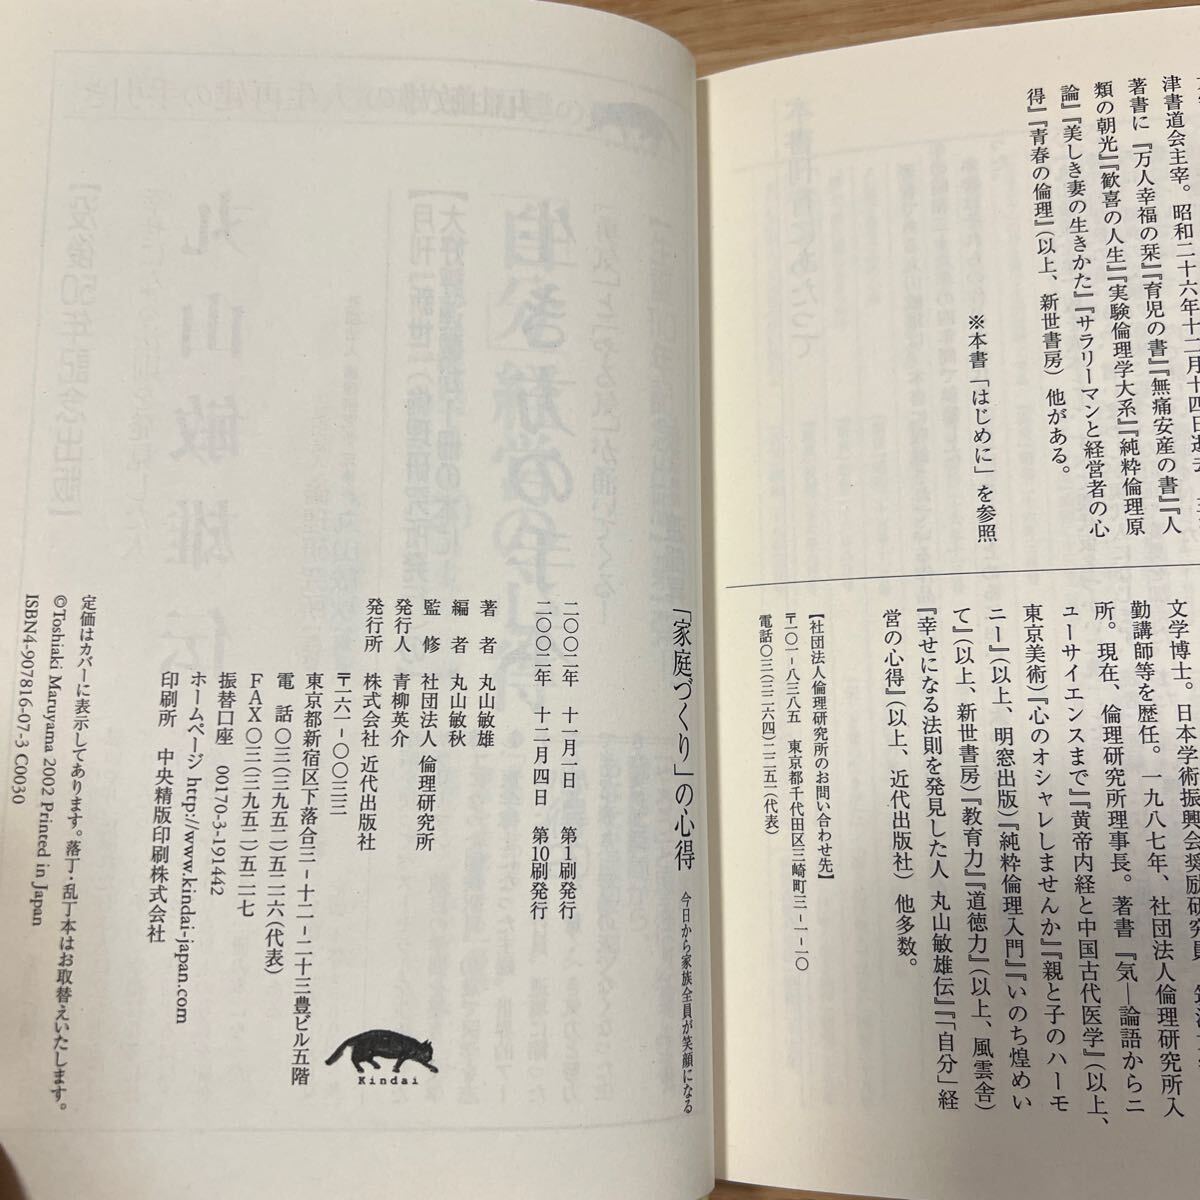 津書道会主宰。昭和二十六年十二月十四日逝去。
著書に『万人幸福の栞』『育児の書』『無痛安産の書』『人
類の朝光』『歓喜の人生』『実験倫理学大系』『純粋倫理原
論』『美しき妻の生きかた』『サラリーマンと経営者の心
得』『青春の倫理』(以上、新世書房)他がある。
※本書「はじめに」を参照
文学博士。日本学術振興会奨励研究員、
勤講師等を歴任。一九八七年、社団法人倫理研究所入
所。現在、倫理研究所理事長。著書『気―論語からニ
ューサイエンスまで』『黄帝内経と中国古代医学』(以上、
東京美術)『心のオシャレしませんか』『親と子のハーモ
ニー』(以上、明窓出版)『純粋倫理入門』『いのち煌めい
て』(以上、新世書房)『教育力』『道徳力』(以上、風雲舎)
『幸せになる法則を発見した人 丸山敏雄伝』『「自分」経
営の心得』(以上、近代出版社)他多数。
【社団法人倫理研究所のお問い合わせ先】
〒一〇一-八三八五 東京都千代田区三崎町三-一-一〇
電話〇三(三二六四)二二五一(代表)
「家庭づくり」の心得 今日から家族全員が笑顔になる
二〇〇二年 十一月一日 第1刷発行
二〇〇二年 十二月四日 第10刷発行
著者 丸山敏雄
編者 丸山敏秋
監修 社団法人 倫理研究所
発行人 青柳英介
発行所 株式会社 近代出版社
〒一六一-〇〇三三
東京都新宿区下落合三-十二-二十三豊ビル五階
電話〇三(三九五二)五二二六(代表)
FAX〇三(三九五二)五二二七
振替口座 00170-3-191442
ホームページ http://www.kindai-japan.com
印刷所 中央精版印刷株式会社
Kindai
定価はカバーに表示してあります。落丁・乱丁本はお取替えいたします。
©Toshiaki Maruyama 2002 Printed in Japan
ISBN4-907816-07-3 C0030